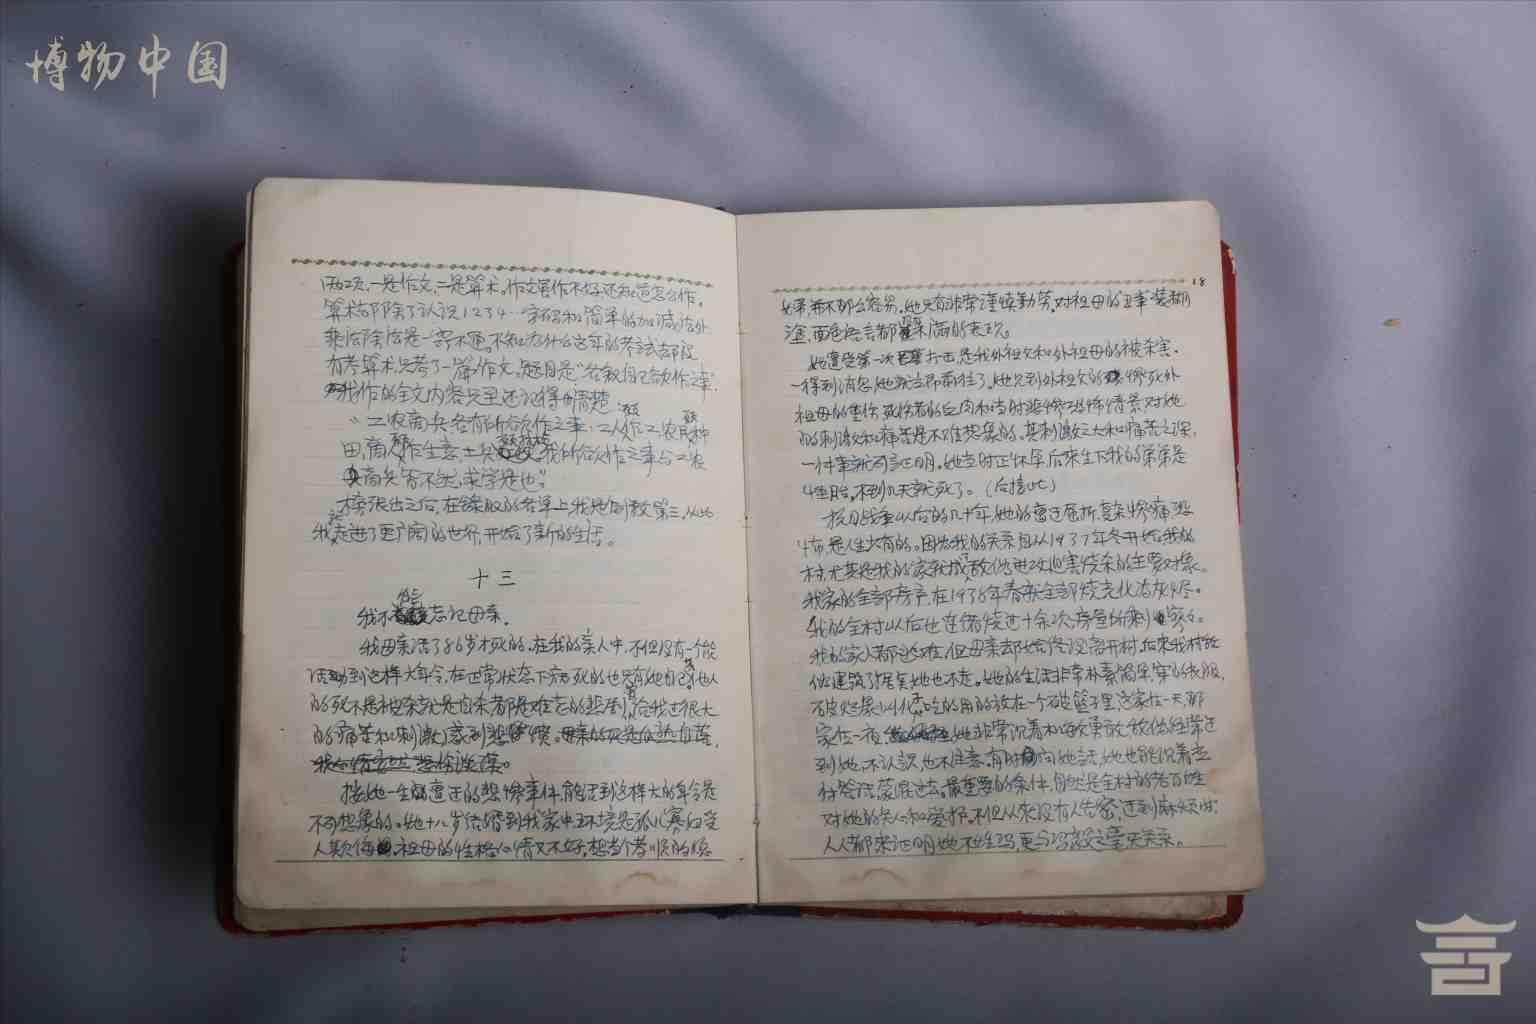 博物中国
两项,一是作文,二是算术。作文写作不好还知道怎么作。
算术却除了认识1234…字码和简单的加减法外
乘法除法是一窍不通。不知为什么这年的考试却没
有考算术,只考了一篇作文,题目是“各叙自己欲作之事”,
我作的全文内容只里还记得明清楚:
“工农商兵各有所欲作之事,工人作工,农民种
田,商人作生意,士兵 我所欲作之事与工农
商兵皆不先,求学是也。”
榜张出之后,在录取的名单上我是倒数第三,从此
我走进了更广阔的世界,开始了新的生活。
十三
我不 忘记母亲。
我母亲活了86岁才死的。在我的亲人中,不但没有一个能
活到这样大年令,在正常状态下方死的也只有她自己。他人
的死不是被杀就是自杀都是难忘的悲剧,给我过很大
的痛苦和刺激,感到悲愤。母亲的死是自然
按她一生遭迂的悲惨事件,能活到这样大的年令是
不可想象的。她十八岁结婚到我家中,环境是孤儿寡妇受
人欺侮,祖母的性格心情又不好,想当个孝顺的媳
18
妇,并不那么容易。她只有非常谨慎勤劳,对祖母的丑事装糊
涂,面色语言都 不满的表现。
她遭受第一次 打击是我外祖父和外祖母的被杀害。
一得到消息她就立即前往了。她见到外祖父的惨死外
祖母的重伤,死伤者的血肉和当时悲惨恐怖情景对她
的刺激和痛苦是不难想象的。其刺激之大和痛苦之深,
一件事就可证明。她当时正怀孕,后来生下我的弟弟是
血胎,不到几天就死了。(后接此)
抗日战争以后的几十年,她的遭迂屈折,复杂惨痛恐
怖,是人生少有的。因为我的关系自从1937年冬开始我的
村尤其是我的家就成敌伪进攻迫害烧杀的主要对象。
我家的全部房产,在1938年春就全部烧光化为灰烬。
我的全村以后也连续烧过十余次,房屋所剩寥寥。
我的家人都逃难,但母亲却始终没离开村,后来我村敌
伪建筑了据点她也不走。她的生活非常朴素简单,穿的衣服,
破烂象叫化,吃的用的放在一个破篮子里,这家住一天,那
家住一夜, 她非常沉着和每次勇敢,敌伪经常迂
到她,不认识,也不住意,有时向她问话,她也能沉着应
付答话,蒙混过去。最重要的条件,自然是全村的老百姓
对她的关心和爱护,不但从来没有人告密,迂到麻烦时
人人都来证明她不姓冯,更与冯家毫无关系。